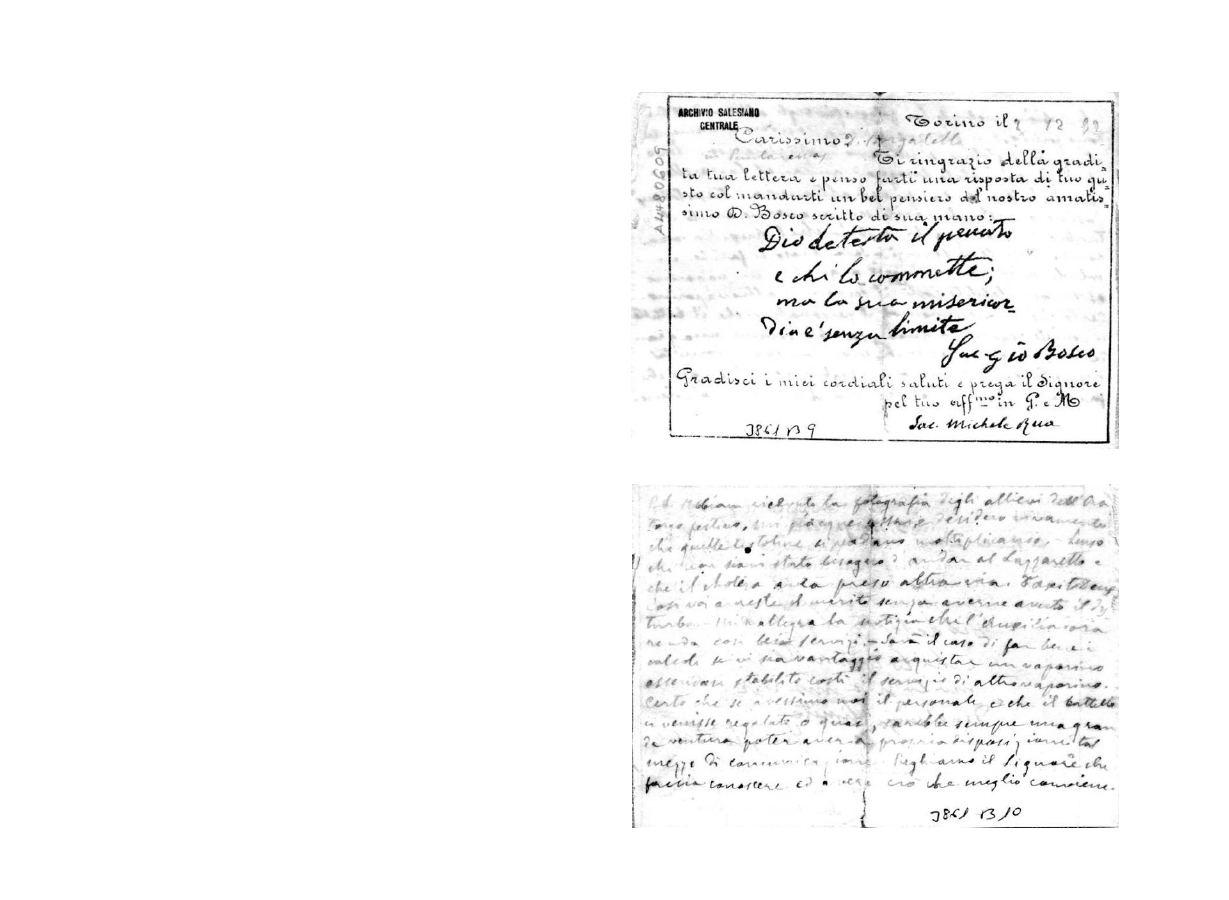 ARCHIVIO SALESIANO
CENTRALE
Torino il 2 12
Carissimo D.
Ti ringrazio della gradi=
ta tua lettera e penso farti una risposta di tuo gu=
sto col mandarti un bel pensiero del nostro amatis=
simo D. Bosco scritto di sua mano:
Dio detesta il peccato
e chi lo commette;
ma la sua misericor=
dia è senza limite
Sac Gio Bosco
Gradisci i miei cordiali saluti e prega il Signore
pel tuo aff.mo in G. e M
Sac. Michele Rua
3861 B 9
A4480609
ricevuto la fotografia degli allievi dell'Ora
torio festivo, mi desidero vivamente
che quelle testoline si vadano moltiplicando,
che non siavi stato bisogno d'andar al Lazzaretto e
che il cholera preso altra via.
Così voi avreste il merito senza averne avuto il dis
turbo. Mi rallegra la notizia che l'
renda così bei servizi. Sarà il caso di far bene i
calcoli se vi sia vantaggio acquistar un vaporino
essendosi stabilito costì il servizio di altro vaporino.
Certo che se avessimo noi il personale e che il battello
ci venisse regalato o quasi, sarebbe sempre una gran
de ventura poter aver a propria disposizione tal
mezzo di comunicazione. Preghiamo il Signore che
faccia conoscere ed avere ciò che meglio conviene.
3861 B 10